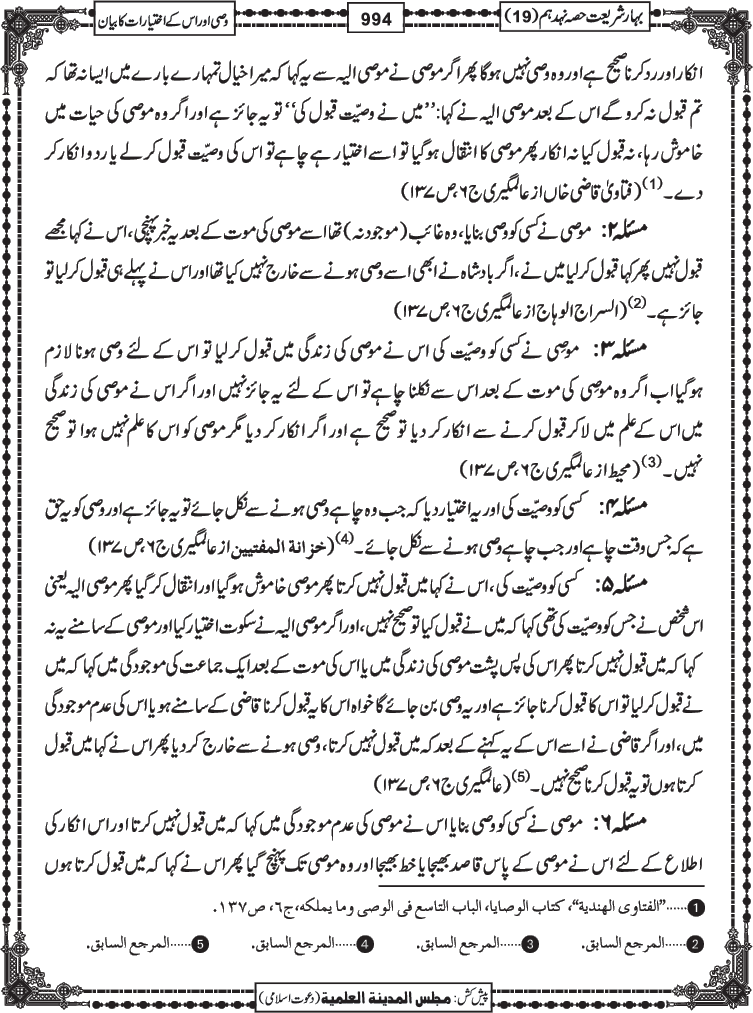 بہار شریعت حصہ نہدہم (19)
994
وصی اور اس کے اختیارات کا بیان
انکار اور رد کرنا صحیح ہے اور وہ وصی نہیں ہوگا پھر اگر موصی نے موصی الیہ سے یہ کہا کہ میرا خیال تمہارے بارے میں ایسا نہ تھا کہ
تم قبول نہ کرو گے اس کے بعد موصی الیہ نے کہا: ’’میں نے وصیّت قبول کی‘‘ تو یہ جائز ہے اور اگر وہ موصی کی حیات میں
خاموش رہا، نہ قبول کیا نہ انکار پھر موصی کا انتقال ہوگیا تو اسے اختیار ہے چاہے تو اس کی وصیّت قبول کرلے یا رد و انکار کر
دے۔(1) (فتاویٰ قاضی خاں از عالمگیری ج۶،ص۱۳۷)
مسئلہ ۲: موصی نے کسی کو وصی بنایا، وہ غائب (موجود نہ) تھا اسے موصی کی موت کے بعد یہ خبر پہنچی، اس نے کہا مجھے
قبول نہیں پھر کہا قبول کرلیا میں نے، اگر بادشاہ نے ابھی اسے وصی ہونے سے خارج نہیں کیا تھا اور اس نے پہلے ہی قبول کرلیا تو
جائز ہے۔(2) (السراج الوہاج از عالمگیری ج۶،ص۱۳۷)
مسئلہ ۳: موصی نے کسی کو وصیّت کی اس نے موصی کی زندگی میں قبول کرلیا تو اس کے لئے وصی ہونا لازم
ہوگیا اب اگر وہ موصی کی موت کے بعد اس سے نکلنا چاہے تو اس کے لئے یہ جائز نہیں اور اگر اس نے موصی کی زندگی
میں اس کے علم میں لاکر قبول کرنے سے انکار کردیا تو صحیح ہے اور اگر انکار کردیا مگر موصی کو اس کا علم نہیں ہوا تو صحیح
نہیں۔(3) (محیط از عالمگیری ج۶،ص۱۳۷)
مسئلہ ۴: کسی کو وصیّت کی اور یہ اختیار دیا کہ جب وہ چاہے وصی ہونے سے نکل جائے تو یہ جائز ہے اور وصی کو یہ حق
ہے کہ جس وقت چاہے اور جب چاہے وصی ہونے سے نکل جائے۔(4) (خزانة المفتیین از عالمگیری ج۶،ص۱۳۷)
مسئلہ ۵: کسی کو وصیّت کی، اس نے کہا میں قبول نہیں کرتا پھر موصی خاموش ہوگیا اور انتقال کرگیا پھر موصی الیہ یعنی
اس شخص نے جس کو وصیّت کی تھی کہا کہ میں نے قبول کیا تو صحیح نہیں، اور اگر موصی الیہ نے سکوت اختیار کیا اور موصی کے سامنے یہ نہ
کہا کہ میں قبول نہیں کرتا پھر اس کی پس پشت موصی کی زندگی میں یا اس کی موت کے بعد ایک جماعت کی موجودگی میں کہا کہ میں
نے قبول کرلیا تو اس کا قبول کرنا جائز ہے اور یہ وصی بن جائے گا خواہ اس کا یہ قبول کرنا قاضی کے سامنے ہو یا اس کی عدم موجودگی
میں، اور اگر قاضی نے اسے اس کے یہ کہنے کے بعد کہ میں قبول نہیں کرتا، وصی ہونے سے خارج کردیا پھر اس نے کہا میں قبول
کرتا ہوں تو یہ قبول کرنا صحیح نہیں۔(5) (عالمگیری ج۶،ص۱۳۷)
مسئلہ ۶: موصی نے کسی کو وصی بنایا اس نے موصی کی عدم موجودگی میں کہا کہ میں قبول نہیں کرتا اور اس انکار کی
اطلاع کے لئے اس نے موصی کے پاس قاصد بھیجا یا خط بھیجا اور وہ موصی تک پہنچ گیا پھر اس نے کہا کہ میں قبول کرتا ہوں
1 ......"الفتاوی الهندیة"، کتاب الوصایا، الباب التاسع فی الوصی وما یملکه،ج۶، ص۱۳۷.
2 ......المرجع السابق. 3 ......المرجع السابق. 4 ......المرجع السابق. 5 ......المرجع السابق.
پیش کش: مجلس المدينة العلمية (دعوت اسلامی)